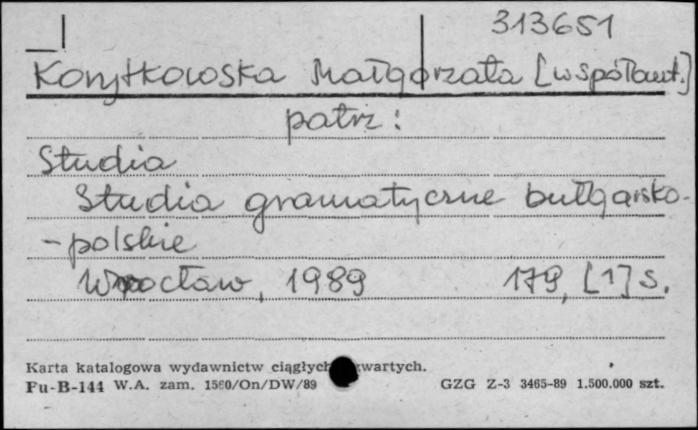 313651
Korytkowska Małgorzata [współaut.]
patrz:
Studia
Studia gramatyczne bułgarsko-
-polskie
Wrocław, 1989 179, [1] s.
Karta katalogowa wydawnictw ciągłych zwartych.
Pu-B-144 W.A. zam. 1580/On/DW/89 GZG Z-3 3465-89 1.500.000 szt.